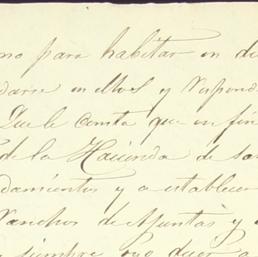 no para habitar en di
darse en ellos y respond
Que le consta que un fin
de la Hacienda de sa
damientos y a establecer
Ranchos de Apuntas y
y siempre que decr a